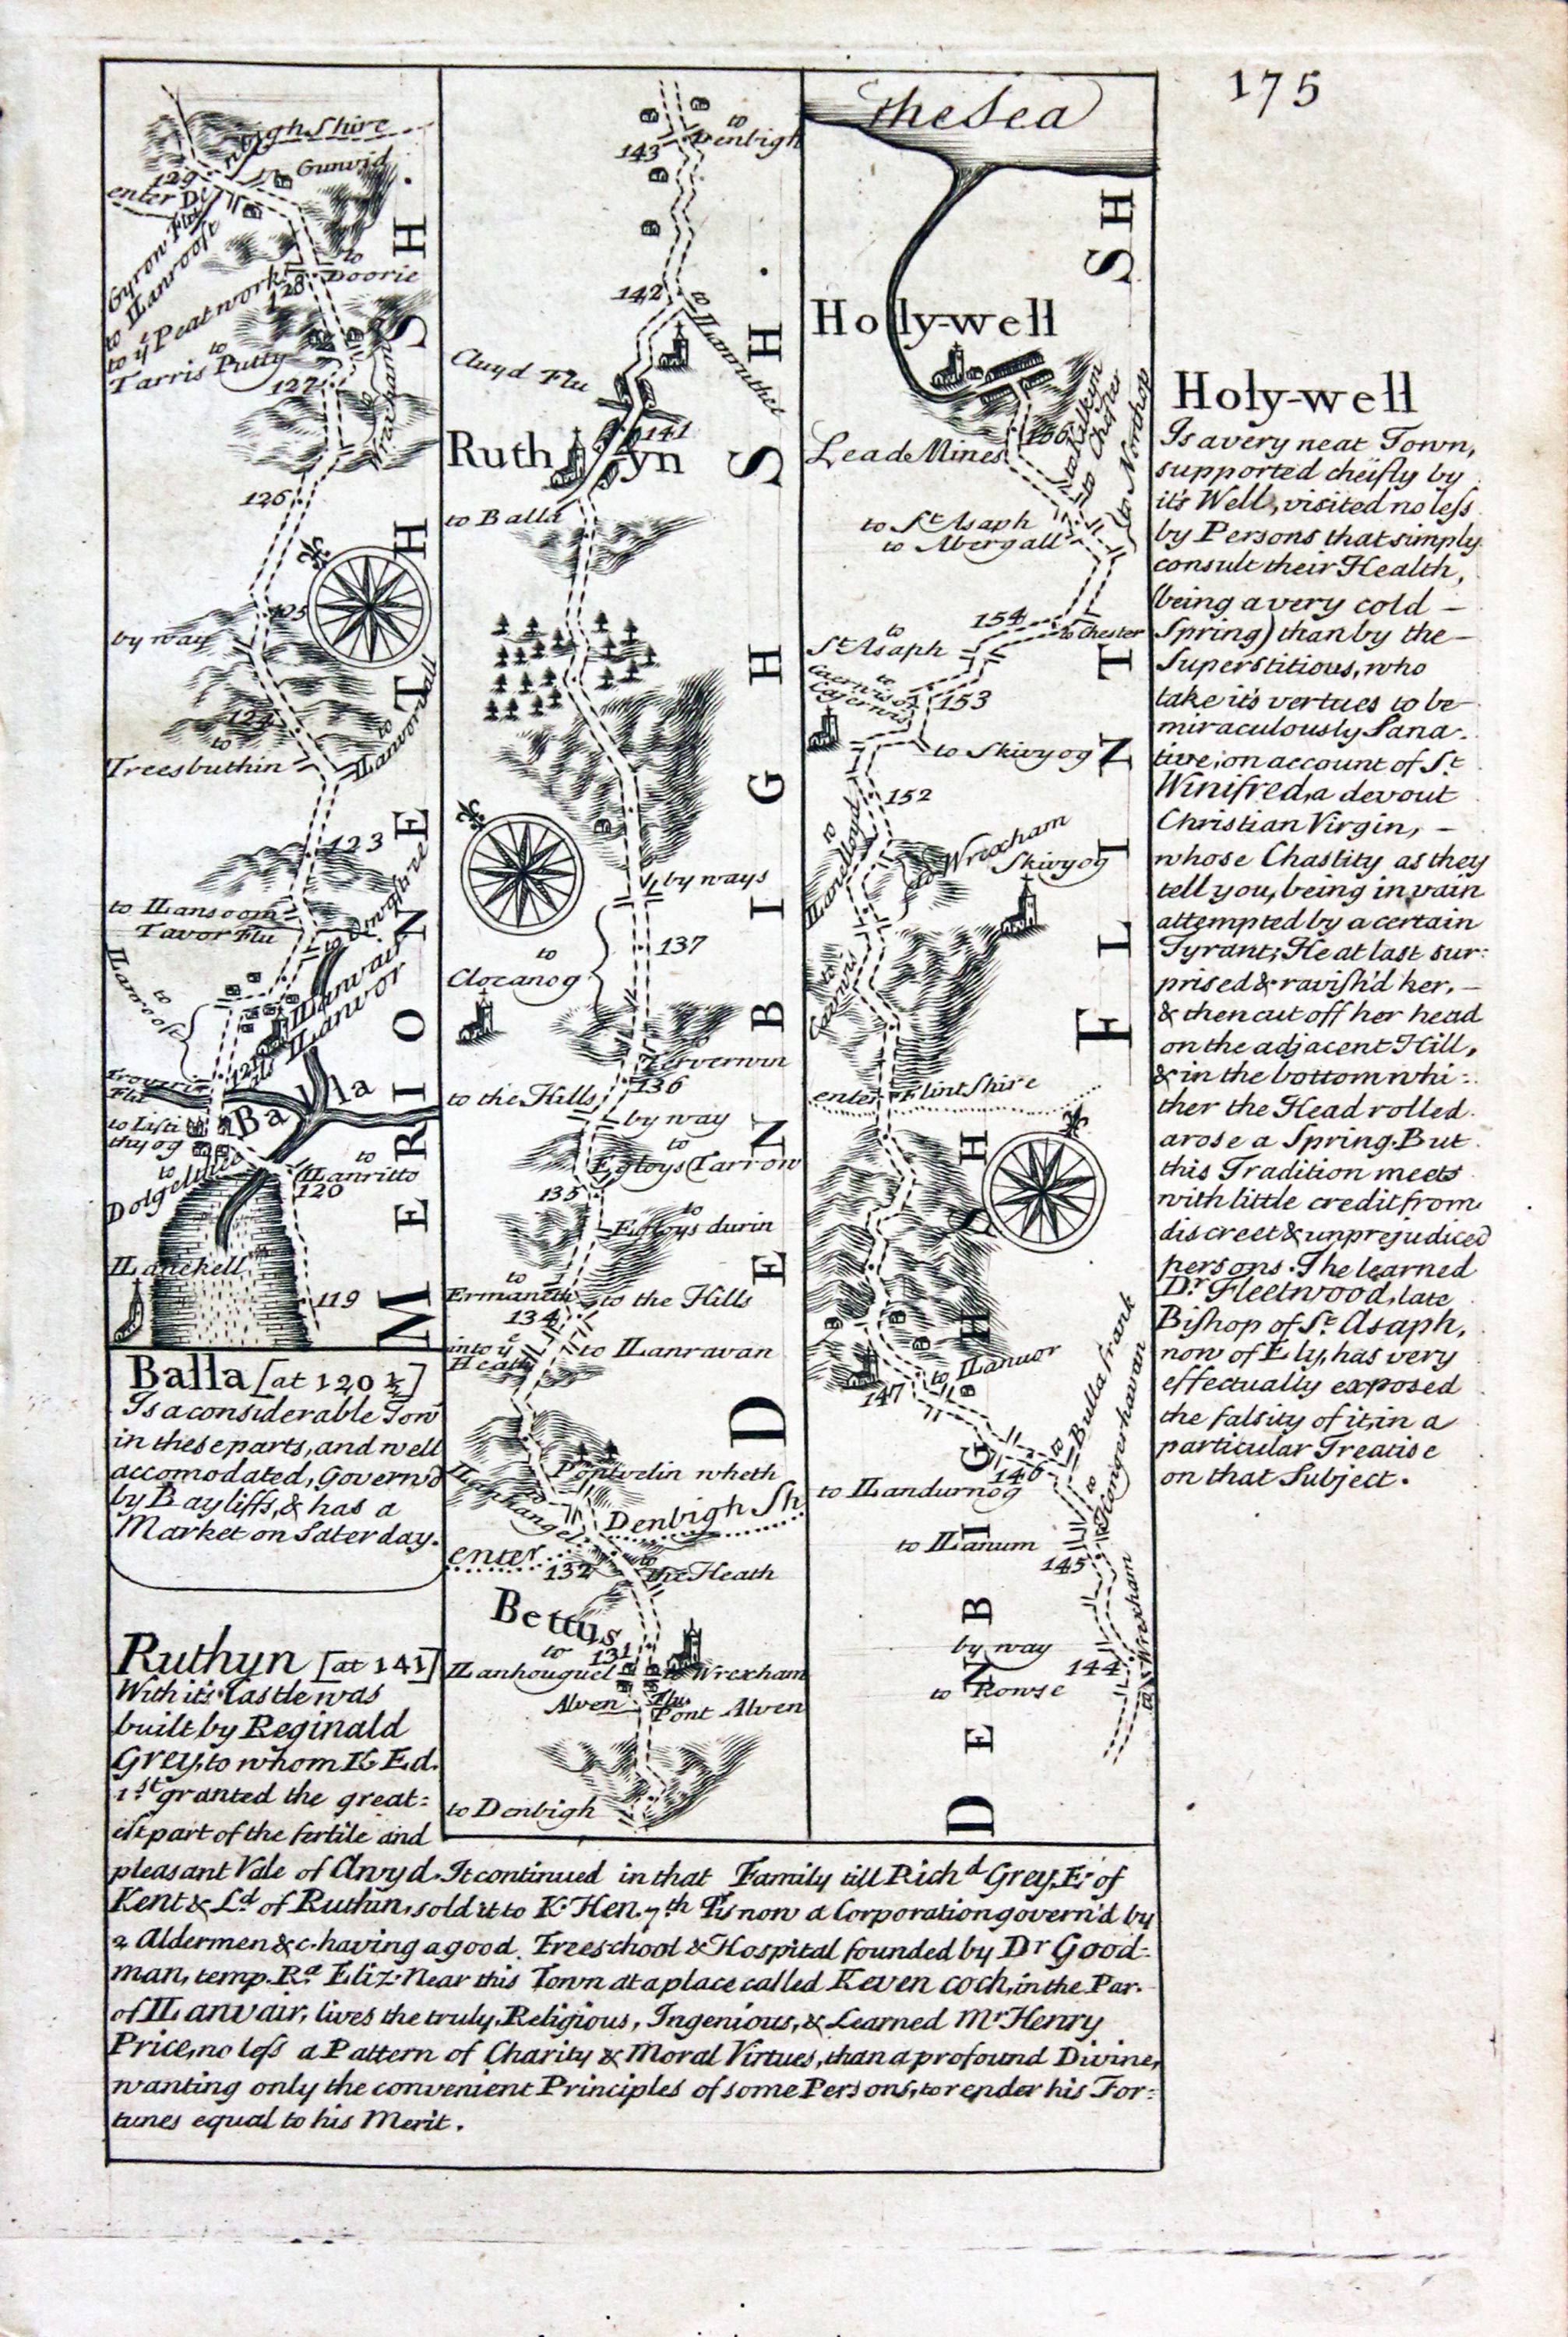 175
gh Shire
to Gunvid
129
enter De
Gyron Flu
to Llanrooft
to yͤ Peatwork
128
to
Doorie
to
Tarris Putty
127
126
125
by way
124
to
Treesbuthin
to
Llanworthall
123
to Llansoom
Tavor Flu
to
Llanroost
Llanwair
Llanvor
121
Balla
to Listi
thyog
to
Dolgelheu
to
Llanritto
120
Llanekell
119
MERIONETH SH.
Balla [at 120½]
Is a considerable Tow̄
in these parts, and well
accomodated, Govern'd
by Bayliffs, & has a
Market on Saterday.
Ruthyn [at 141]
With it's Castle was
built by Reginald
Grey, to whom K. Ed.
1ˢᵗ granted the great:
est part of the fertile and
pleasant Vale of Clwyd. It continued in that Family till Richᵈ Grey, E. of
Kent & Lᵈ of Ruthin, sold it to K. Hen. 7ᵗʰ Tis now a Corporation govern'd by
2 Aldermen &c. having a good Freeschool & Hospital founded by Dʳ Good-
man, temp. Rᵃ Eliz. Near this Town at a place called Keven coch, in the Par.
of Llanvair, lives the truly, Religious, Ingenious, & Learned Mʳ Henry
Price, no less a Pattern of Charity & Moral Virtues, than a profound Divine,
wanting only the convenient Principles of some Persons, to render his For:
tunes equal to his Merit.
to
Denbigh
143
142
to
Llanruthel
Cluyd Flu
141
Ruthyn
to Balla
by ways
137
to
Clocanog
136
to the Hills
by way
to
Egloys Tarrow
135
to
Egloys durin
to
Ermaneth
to the Hills
134
into yͤ
Heath
to Llanravan
Pontvelin wheth
to
Llanhangel
Denbigh Sh
enter
132
to
the Heath
Bettus
to
131
Llanhouguel
to Wrexham
Alven Flu.
Pont Alven
to Denbigh
DENBIGHSH.
the Sea
Holy-well
to Kilkem
to Chester
to Northop
Lead Mines
to Sᵗ Asaph
to Abergall
154
to Chester
to
Sᵗ Asaph
to
Caerwis or
Cajerwis
153
to Skivyog
152
to
Llanelloyd
to Wrexham
Skivyog
to
Caerwis
enter Flint Shire
FLINT SH
147
to Llanuor
146
to
Bulla frank
to Llandurnog
to
Hongerhavan
to Llanum
145
by way
144
to Rowse
to Wrexham
DENBIGH SH
Holy-well
Is a very neat Town,
supported cheifly by
it's Well, visited no less
by Persons that simply
consult their Health,
(being a very cold –
Spring) than by the –
Superstitious, who
take it's vertues to be
miraculously Sana-
tive; on account of Sᵗ
Winifred, a devout
Christian Virgin, –
whose Chastity as they
tell you, being in vain
attempted by a certain
Tyrant; He at last sur:
prised & ravish'd her, –
& then cut off her head
on the adjacent Hill,
& in the bottom whi:
ther the Head rolled
arose a Spring. But
this Tradition meets
with little credit from
discreet & unprejudiced
persons. The learned
Dʳ Fleetwood, late
Bishop of Sᵗ Asaph,
now of Ely, has very
effectually exposed
the falsity of it, in a
particular Treatise
on that Subject.